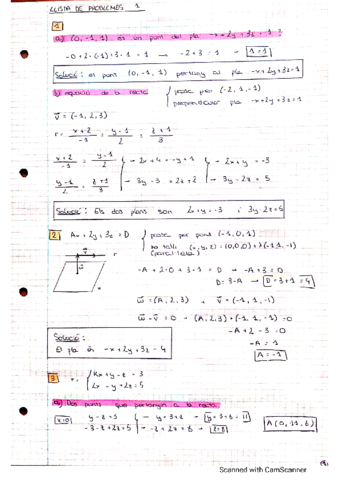 LLISTA DE PROBLEMES 1
1
a) (0, -1, 1) és un punt del pla -x+2y+3z = 1 ?
-0+2·(-1)+3·1 = 1 → -2+3 = 1 → 1=1
Solució: el punt (0, -1, 1) pertany al pla -x+2y+3z=1
b) equació de la recta { passa per (-2, 1, -1)
perpendicular pla -x+2y+3z=1
v = (-1, 2, 3)
r = x+2/-1 = y-1/2 = z+1/3
x+2/-1 = y-1/2 } - 2x+4 = -y+1 } 2x+y = -3
y-1/2 = z+1/3 } - 3y-3 = 2z+2 } 3y-2z = 5
Solució: Els dos plans són 2x+y = -3 i 3y-2z=5
2 Ax+2y+3z=D { passa per punt (-1, 0, 1)
no talla (x,y,z) = (0,0,0)+λ(-1,1,-1)
(paral·lela)
-A+2·0+3·1=D → -A+3=D
D=3-A → D=3+1=4
w = (A, 2, 3) v = (-1, 1, -1)
w·v = 0 → (A,2,3)·(-1, 1, -1) =0
-A+2-3=0
-A=1
A=-1
Solució:
El pla és -x+2y+3z=4
3 r: { Kx+y-z = 3
2x-y+2z=5
a) Dos punts que pertanyen a la recta
x=0
A(0, 11, 8)
Scanned with CamScanner